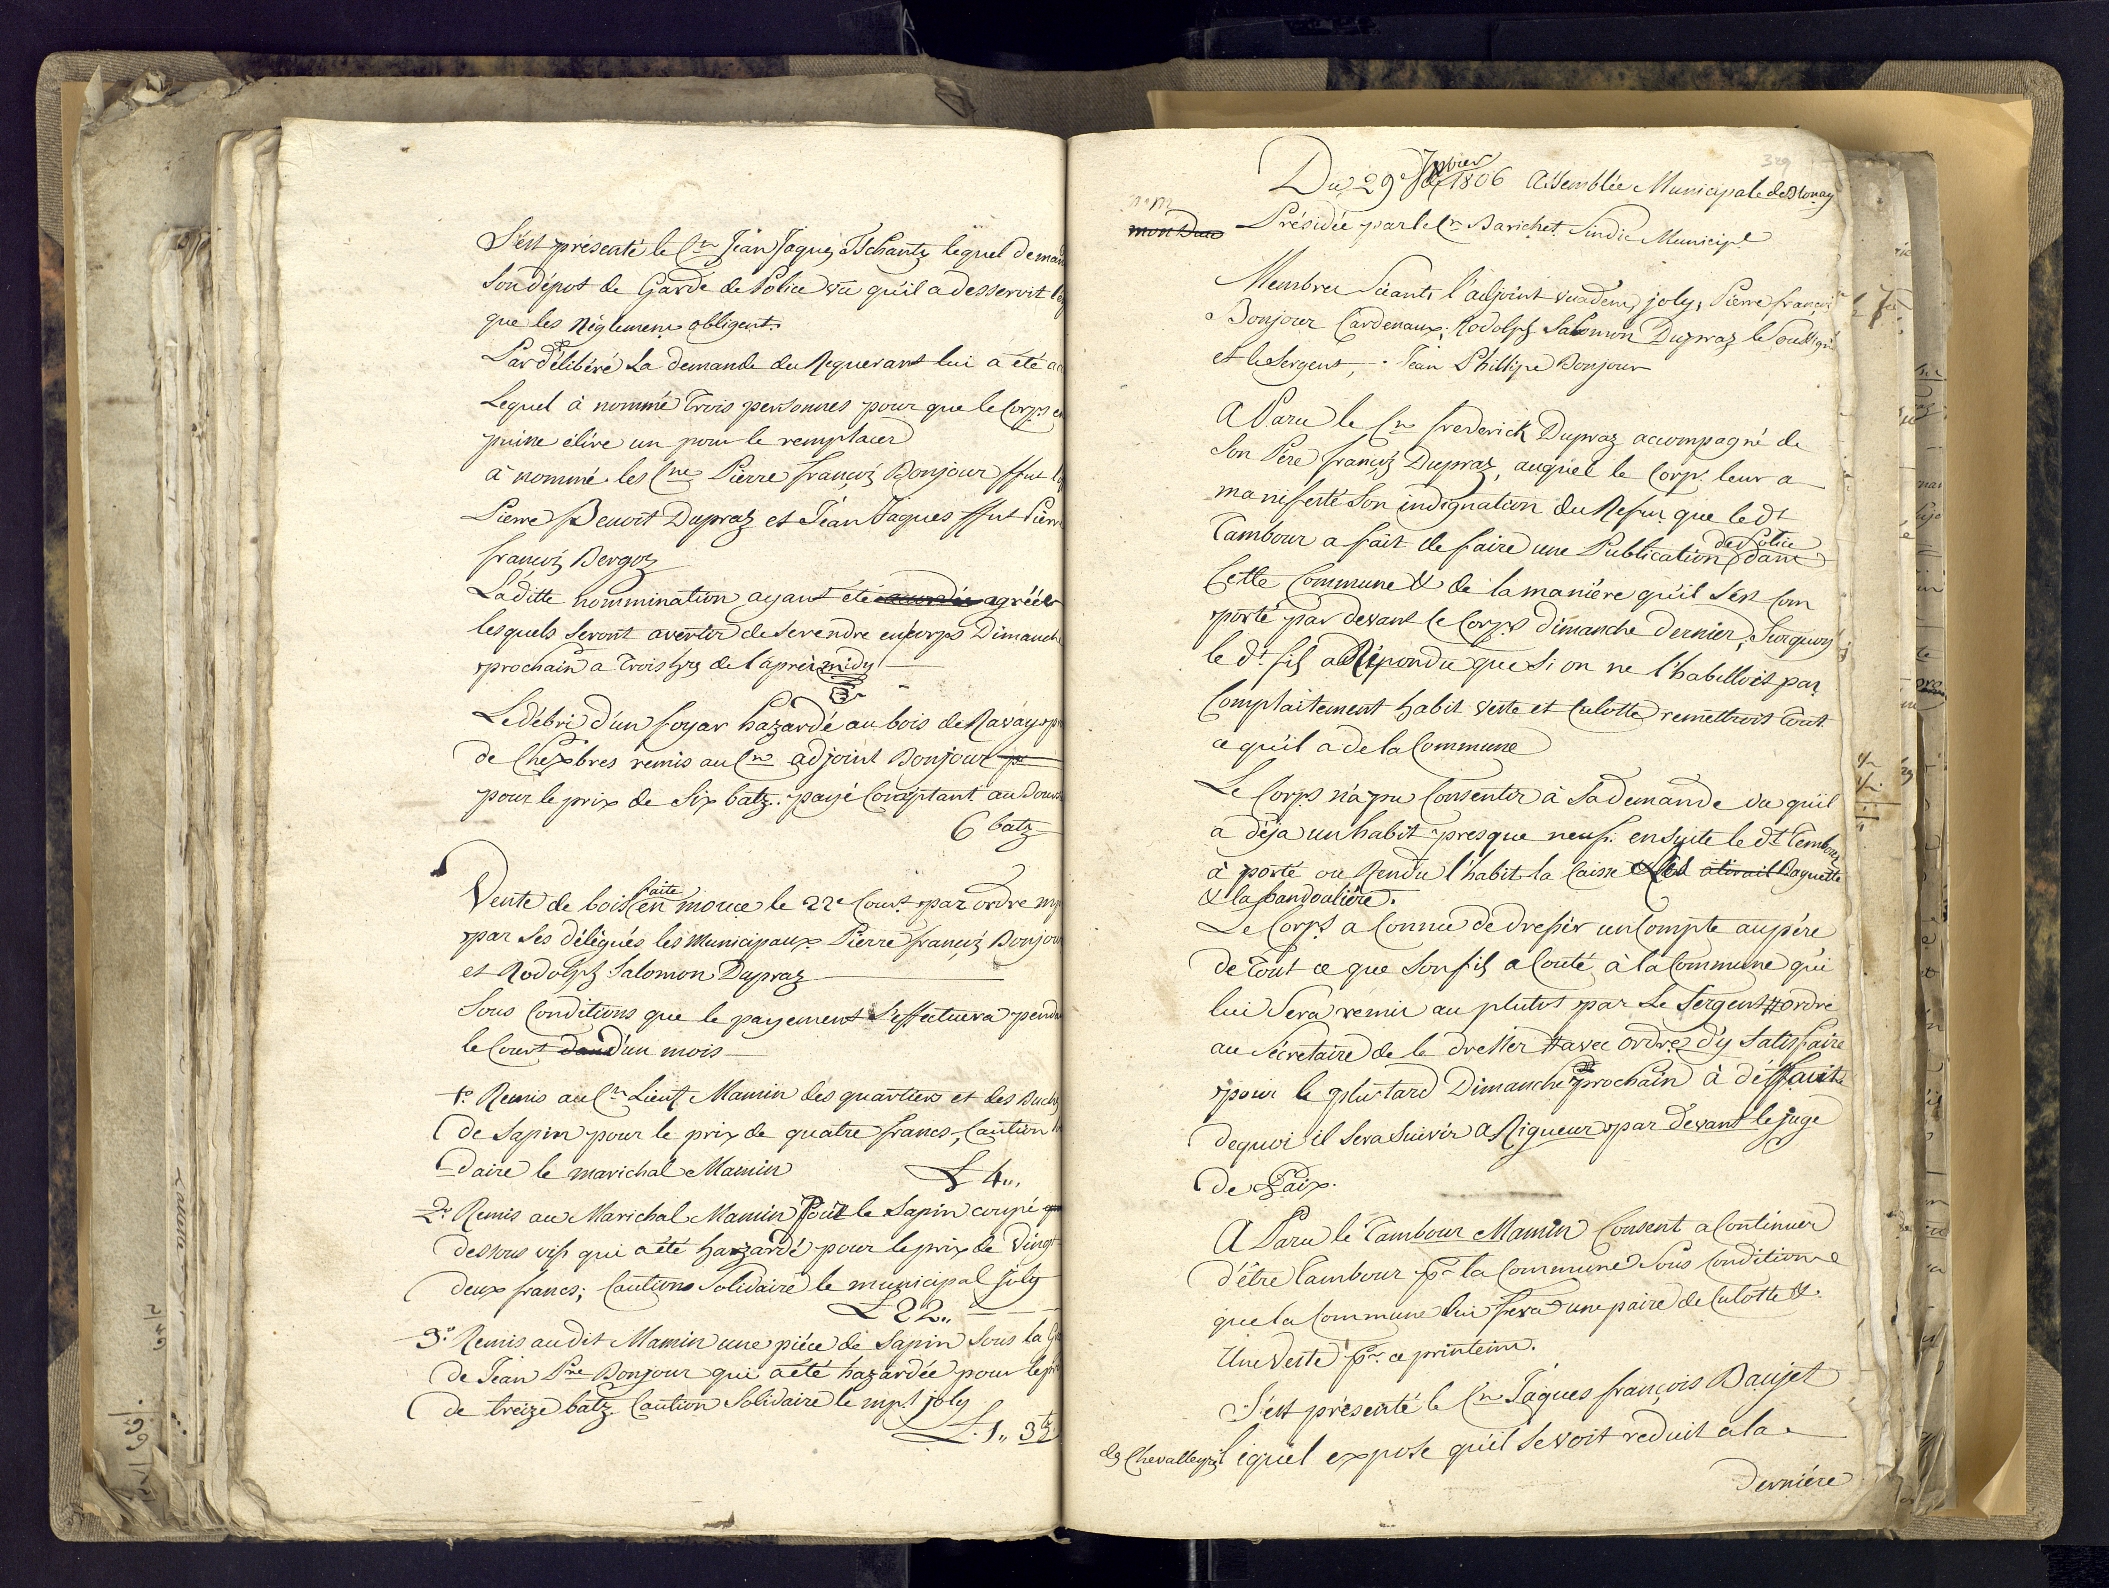 S'est présenté le Cn Jean Jaques Tschantz lequel deman
Son dépot de Garde de Police vû qu'il a desservit
que les Réglemens obligent.
Par délibéré La demande du Requerant lui a été ac
Lequel à nommé Trois personnes pour que le Corps en
puisse élire un pour le remplacer
à nommé les Cns Pierre françois Bonjour ffut
Pierre Benoit Dupraz et Jean Jaques ffut Pierre
françois Bergoz
Laditte nommination ayant été agréée
lesquels seront avertir de se rendre en corps Dimanche
prochain a Trois hrs de l'après midy
Le débri d'un foyar hazardé au bois de Ravay
de Chexbres remis au Cn adjoint Bonjour
pour le prix de Six batz. payé Comptant au Bours
6 batz
Vente de bois faite en mouce le 22e Court par ordre
par ses délégués les Municipaux Pierre françois Bonjour
et Rodolph Salomon Dupraz
Sous Conditions que le payement s'effectuera penda
le Court d'un mois
1º. Remis au Cn Lieut Mamin des quartiers et des Buch
de Sapin pour le prix de quatre francs, Caution
daire le marichal Mamin L 4..
2º. Remis au Marichal Mamin Tout le Sapin coupé
dessous vifs qui a été hazardé pour le prix de Vingt
deux francs; Caution Solidaire le municipal joly
L 22..
3º. Remis au dit Mamin une piéce de Sapin Sous la
de Jean Pre Bonjour qui a été hazardée pour le
de treize batz Caution Solidaire le mpl joly
L. 1,, 3
329
Du 29e Janvier 1806 Assemblée Municipale de Blonay
Présidée par le Cn Barichet Sindic Municipl
Membres Séants l'adjoint joly, Pierre françois
Bonjour Cardenaux, Rodolph Salomon Dupraz le Soussigné
et le Sergent, Jean Phillipe Bonjour
A Paru le Cn frederick Dupraz accompagné de
Son Pere françois Dupraz, auquel le Corps leur a
manifesté son indignation du Refus que le dt
Tambour a fait de faire une Publication de Police dans
Cette Commune & de la maniére qu'il s'est Com
porté par devant le Corps dimanche dernier, Surquoy
le dt fils a Répondu que Si on ne l'habilloit pas
Complaitement habit veste et Culotte remettroit tout
ce qu'il a de la Commune
Le Corps n'a pu Consentir à Sa demande vu qu'il
a déja un habit presque neuf. ensuite le dt Tembour
à porté ou Rendu l'habit la Caisse & les atirail Baguette
& la bandouliére.
Le Corps a Connu de dresser un Compte au pére
de Tout ce que Son fils a Couté à la Commune qui
lui Sera remis au plutot par Le Sergent # ordre
au Sécretaire de le dresser # avec ordre d'y satisfaire
pour le plus tard Dimanche prochain à déffaut
dequoi il Sera Suivir a Rigueur par devant le juge
de Paix.
A Paru le Tambour Mamin Consent a Continuer
d'être Tambour pr la Commune Sous Condition
que la Commune lui fera une paire de Culotte &
Une Veste pr ce printems.
S'est présenté le Cn Jaques françois Baujet
des Chevalleyres lequel expose qu'il Se voit reduit a la
derniére